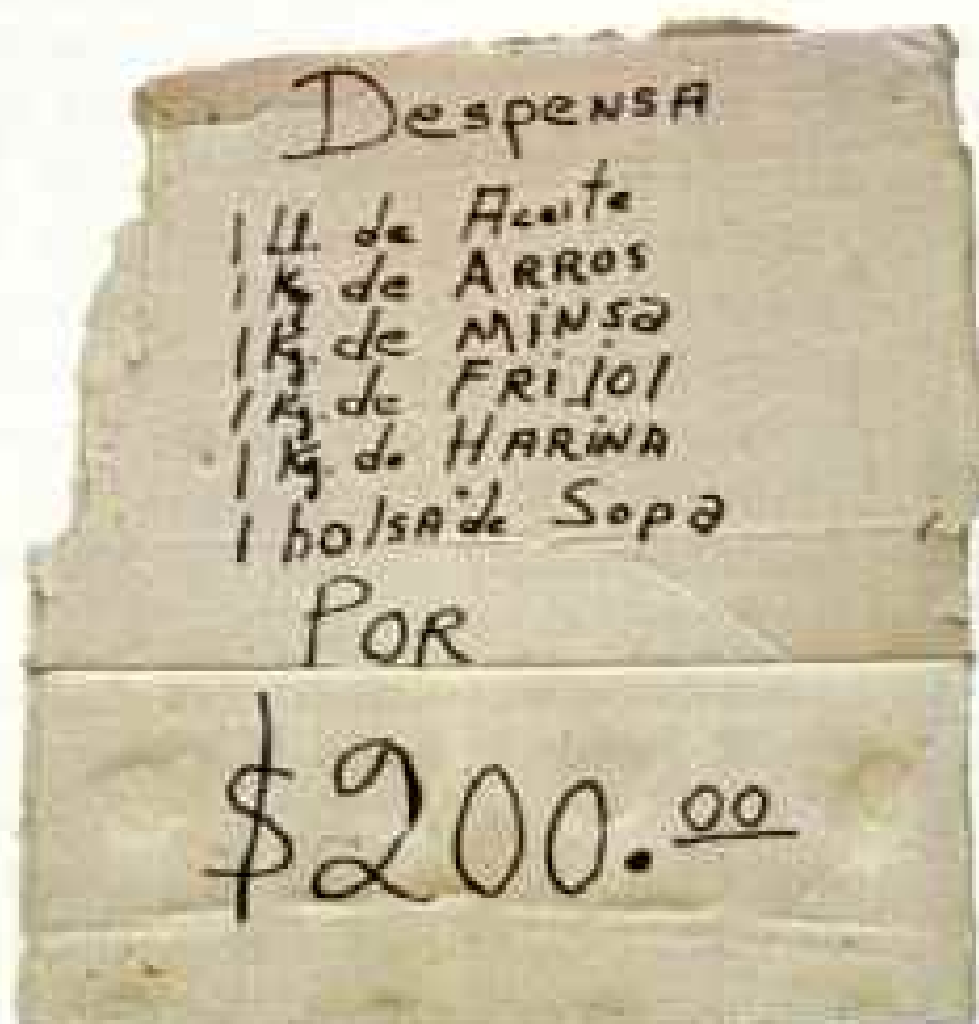 DespeNSA
1 Lt. de Aceite
1 Kg de ARROS
1 Kg. de MiNSa
1 Kg. de FRiJol
1 Kg. de HARiNA
1 bolsA de Sopa
POR
$200.00